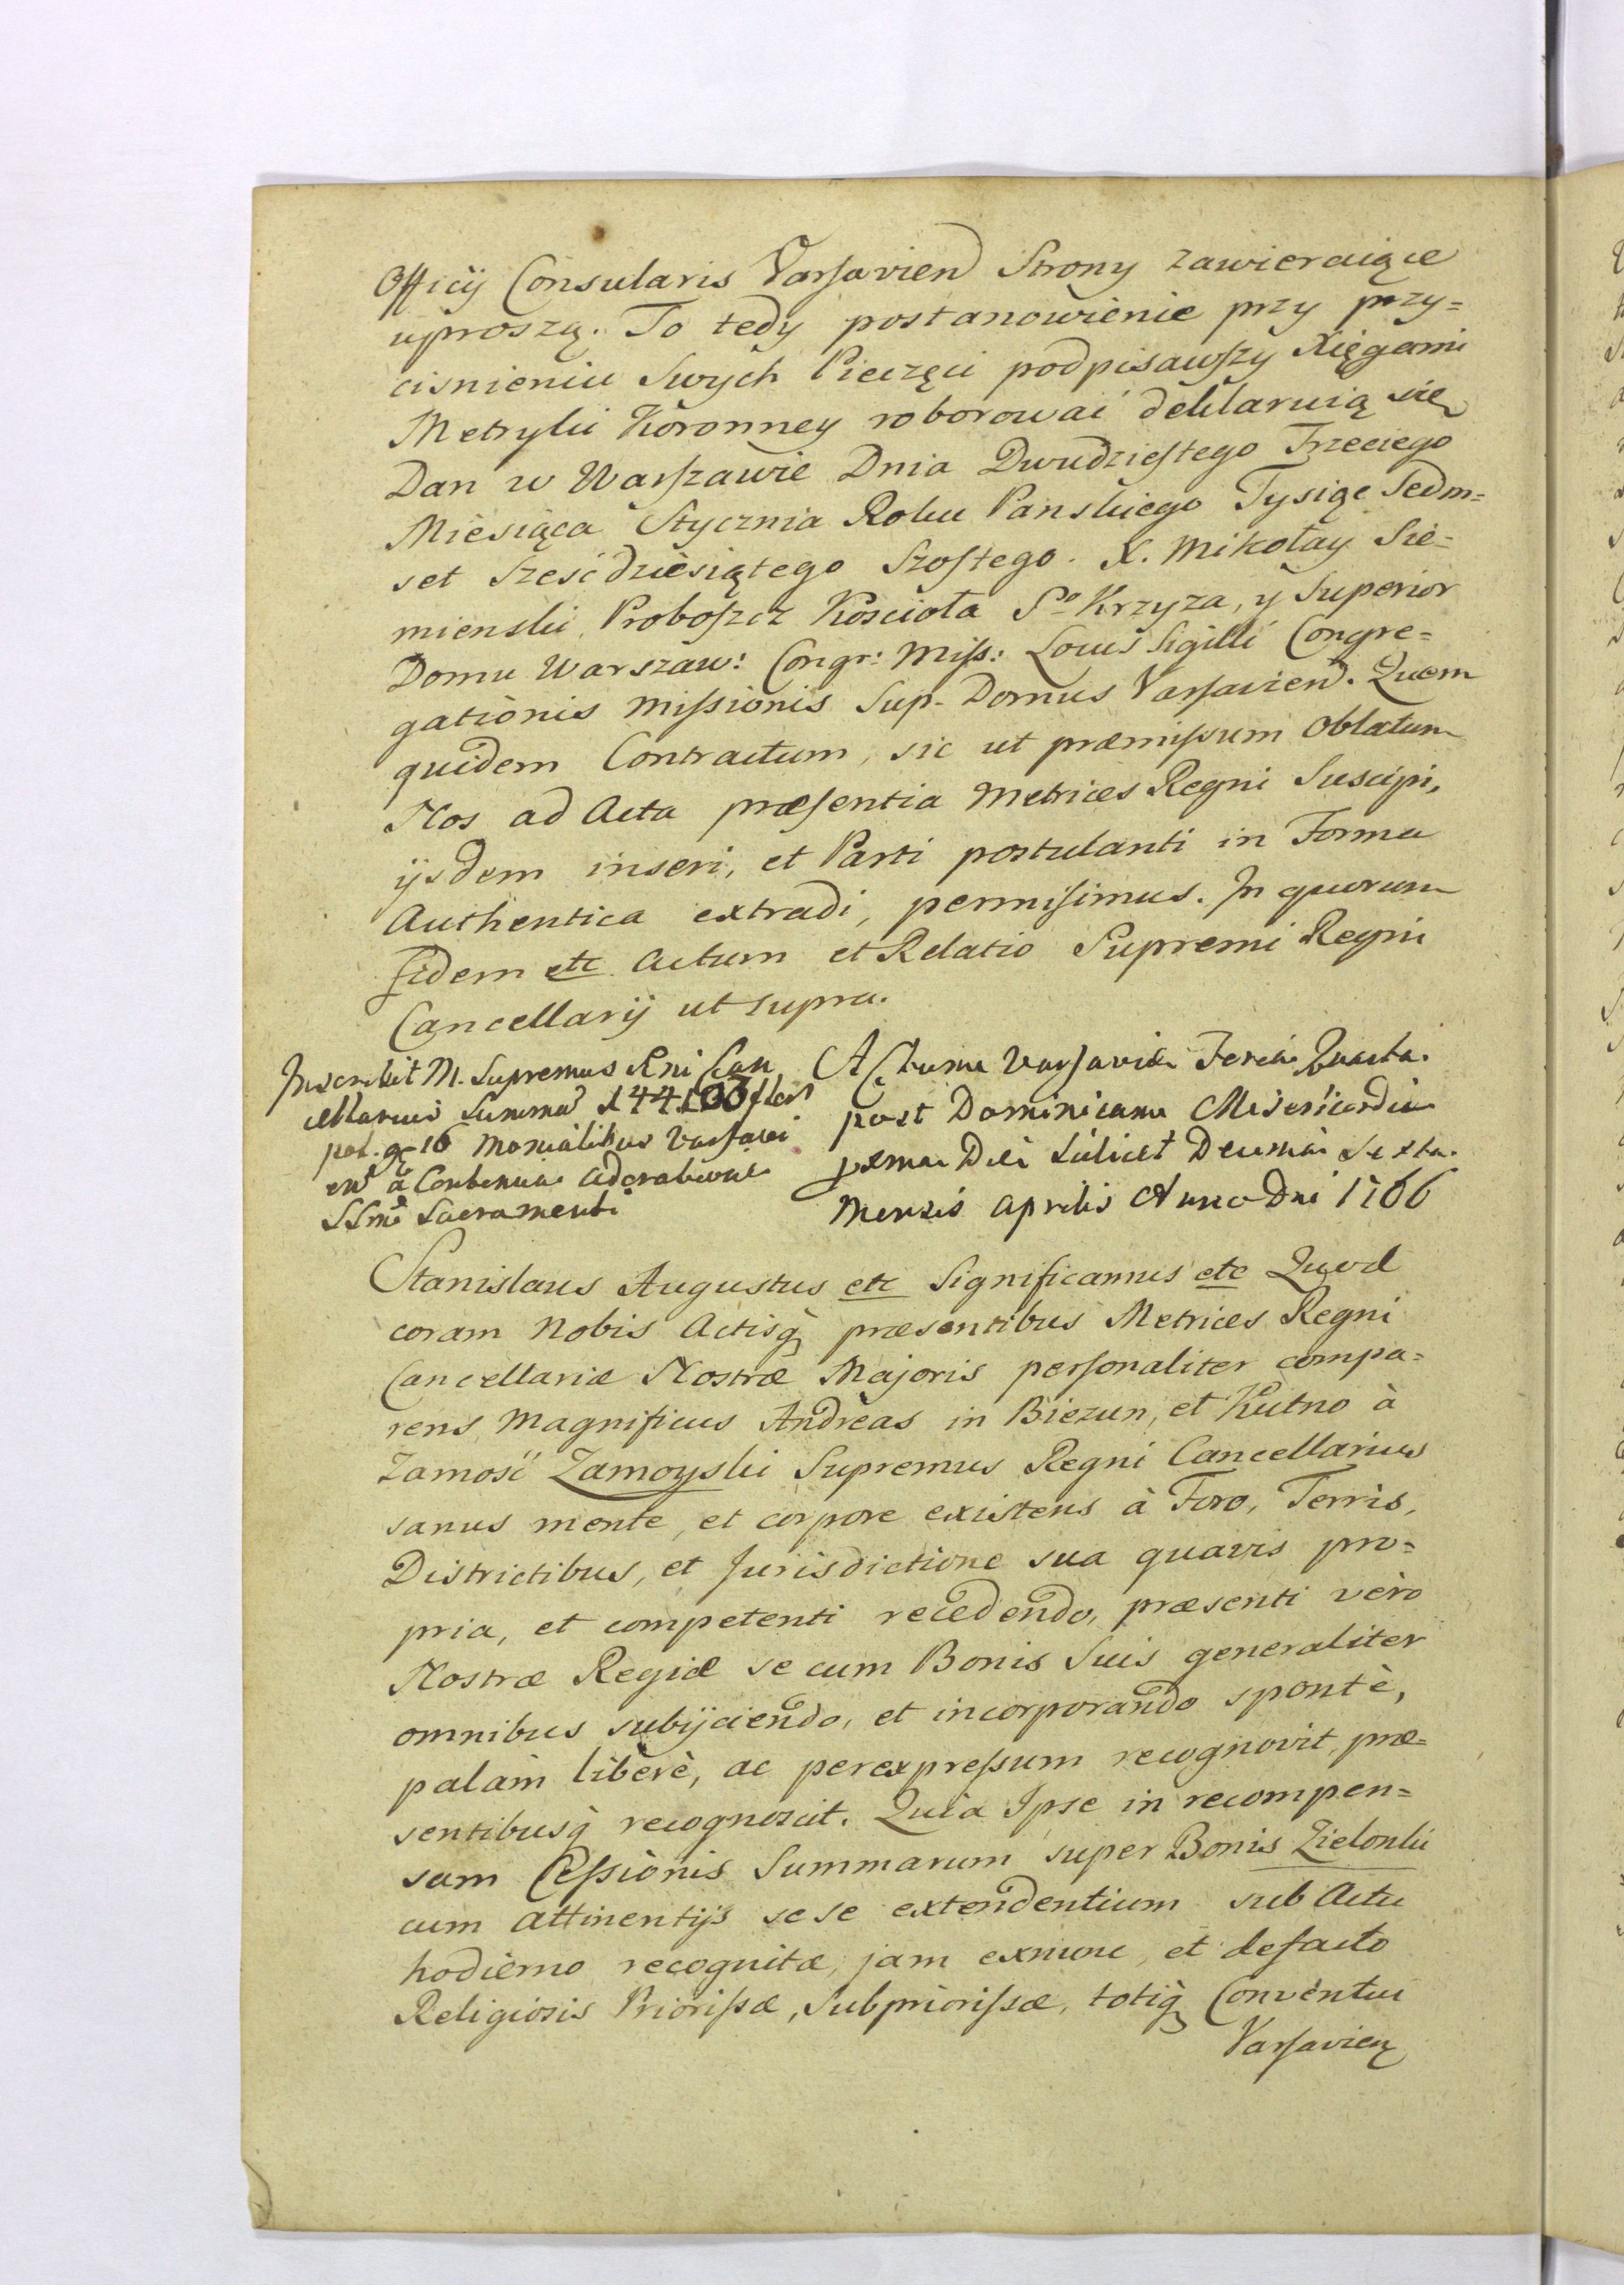 Officij Consularis Varsavien Strony zawieraiące
uproszą. To tedy postanowienie przy przy=
ciśnieniu Swych Pieczęci podpisawszy Xięgami
Metryki Koronney roborować deklaruią się
Dan w Warszawie Dnia Dwudziestego Trzeciego
Miesiąca Stycznia Roku Panskiego Tysiąc Sedm=
set Sześćdziesiątego Szostego. X. Mikołay Sie=
mienski Proboszcz Kościoła Sgo Krzyza, y Superior
Domu Warszaw: Congr: Miss: Locus Sigilli Congre=
gationis Missionis Sup. Domus Varsavien. Quem
quidem Contractum, sic ut præmissum Oblatum
Nos ad Acta præsentia Metrices Regni Suscipi,
ijsdem inseri, et Parti postulanti in Forma
Authentica extradi, permisimus. In quorum
fidem etc Actum et Relatio Supremi Regni
Cancellarij ut supra.
Inscribit M. Supremus Rni Can
cellarius Summã flor
pol. 16 Monialibus Varsavi
en à Continua adoratione
SSmi Sacramenti
Actum Varsaviæ Feria Quarta
post Dominicam Misericordiæ
Die Scilicet Decima Sexta
Mensis Aprilis Anno Dni 1766
Stanislaus Augustus etc Significamus etc Quod
coram Nobis Actisq præsentibus Metrices Regni
Cancellariæ Nostræ Majoris personaliter compa=
rens Magnificus Andreas in Biezun, et Kutno à
Zamość Zamoyski Supremus Regni Cancellarius
sanus mente, et corpore existens à Foro, Terris,
Districtibus, et Jurisdictione sua quavis pro=
pria, et competenti recedendo, præsenti verò
Nostræ Regiæ se cum Bonis Suis generaliter
omnibus subijciendo, et incorporando spontè,
palàm liberè, ac per expressum recognovit, præ=
sentibusq recognoscit. Quia Ipse in recompen=
sam Cessionis Summarum super Bonis Zielonki
cum attinentijs sese extendentium sub Actu
hodierno recognitæ, jam exnunc, et defacto
Religiosis Priorissæ, Subpriorissæ, totiq Conventui
Varsavien